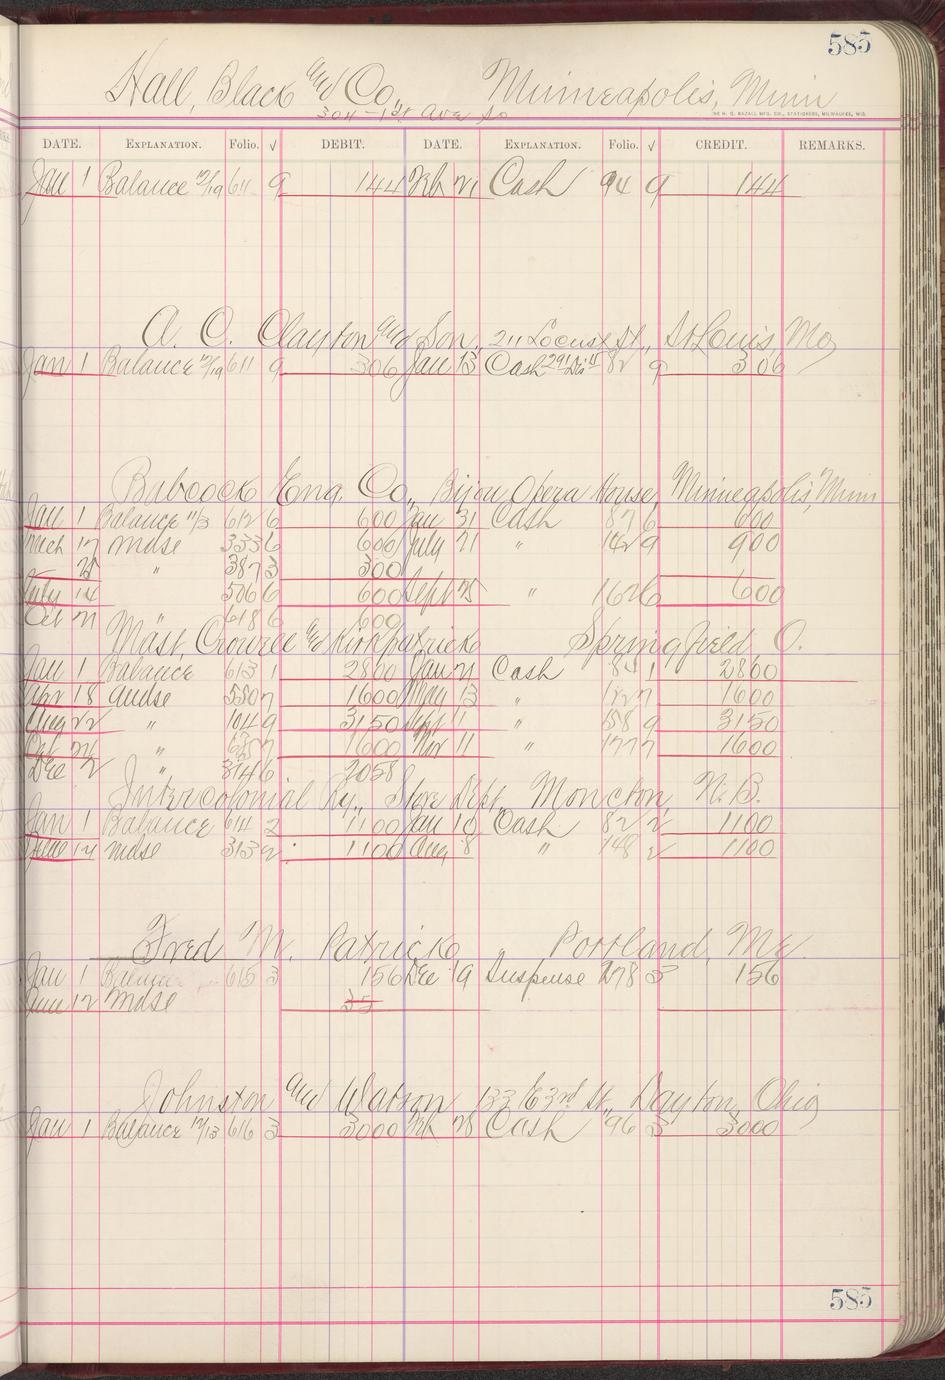 585
Hall, Black and Co., Minneapolis, Minn
304 - 1st Ave So
THE H. G. RAZALL MFG. CO., STATIONERS, MILWAUKEE, WIS.
DATE. EXPLANATION. Folio. √ DEBIT. DATE. EXPLANATION. Folio. √ CREDIT. REMARKS.
Jan 1 Balance 12/19 611 9 144 Feb 21 Cash 94 9 144
A. C. Clayton and Son, 211 Locust St., St Louis, Mo
Jan 1 Balance 12/19 611 9 306 Jan 13 Cash 82 9 306
Babcock Eng. Co., Bijou Opera House, Minneapolis, Minn
Jan 1 Balance 11/3 612 6 600 Jan 31 Cash 87 6 600
Mach 17 Mdse 333 6 600 July 21 " 142 9 900
25 " 387 3 300
July 14 506 6 600 Sept 25 " 162 6 600
Oct 21 " 618 6 600
Mast, Crowell and Kirkpatrick Springfield O.
Jan 1 Balance 613 1 2800 Jan 21 Cash 84 1 2800
Apr 18 Mdse 580 7 1600 May 13 " 127 1600
Aug 22 " 104 9 3150 Sept 1 " 158 9 3150
Oct 24 " 7 1600 Nov 11 " 177 7 1600
Dec 2 " 814 6 2058
Intercolonial Ry., Store Dept, Moncton, N. B.
Jan 1 Balance 614 2 1100 Jan 10 Cash 82 2 1100
June 14 Mdse 313 2 1100 Aug 8 " 148 2 1100
Fred M. Patricke, Portland, Me.
Jan 1 Balance 615 3 156 Dec 19 Suspense 278 3 156
June 12 Mdse 35
Johnston and Watson 133 E 3rd St., Dayton, Ohio
Jan 1 Balance 12/13 616 3 3000 Feb 28 Cash 96 3 3000
585